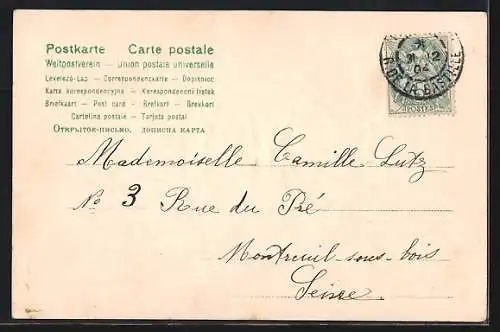 Postkarte Carte postale
Weltpostverein — Union postale universelle
Levelező-Lap — Correspondenzkarte — Dopisnice
Karta korespondencyjna — Korespondenční lístek
Briefkaart — Post card — Brefkort — Brevkort
Cartolina postale — Tarjeta postal
Открытое-письмо, дописна карта
12
04
R. DE LA BASTILLE
POSTES
Mademoiselle Camille Lutz
No 3 Rue du Pré
Montreuil-sous-bois
Seine.